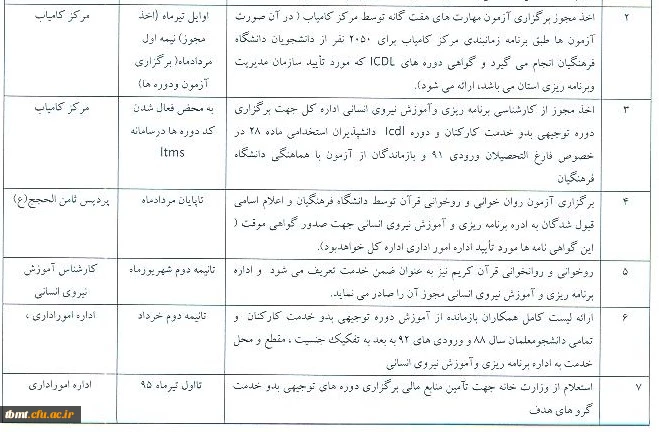 ۲
اخذ مجوز برگزاری آزمون مهارت های هفت گانه توسط مرکز کامیاب ( در آن صورت
آزمون ها طبق برنامه زمانبندی مرکز کامیاب برای ۲۰۵۰ نفر از دانشجویان دانشگاه
فرهنگیان انجام می گیرد و گواهی دوره های ICDL که مورد تأیید سازمان مدیریت
وبرنامه ریزی استان می باشد، ارائه می شود).
اوایل تیرماه (اخذ
مجوز) نیمه اول
مردادماه( برگزاری
آزمون ودوره ها)
مرکز کامیاب
۳
اخذ مجوز از کارشناسی برنامه ریزی وآموزش نیروی انسانی اداره کل جهت برگزاری
دوره توجیهی بدو خدمت کارکنان و دوره Icdl دانشپذیران استخدامی ماده ۲۸ در
خصوص فارغ التحصیلان ورودی ۹۱ و بازماندگان از آزمون با هماهنگی دانشگاه
فرهنگیان
به محض فعال شدن
کد دوره ها درسامانه
ltms
مرکز کامیاب
۴
برگزاری آزمون روان خوانی و روخوانی قرآن توسط دانشگاه فرهنگیان و اعلام اسامی
قبول شدگان به ادره برنامه ریزی و آموزش نیروی انسانی جهت صدور گواهی موقت (
این گواهی نامه ها مورد تأیید اداره امور اداری اداره کل خواهدبود).
تاپایان مردادماه
پردیس ثامن الحجج(ع)
۵
روخوانی و روانخوانی قرآن کریم نیز به عنوان ضمن خدمت تعریف می شود و اداره
برنامه ریزی و آموزش نیروی انسانی مجوز آن را صادر می نماید.
تانیمه دوم شهریورماه
کارشناس آموزش
نیروی انسانی
۶
ارائه لیست کامل همکاران بازمانده از آموزش دوره توجیهی بدو خدمت کارکنان و
تمامی دانشجومعلمان سال ۸۸ و ورودی های ۹۲ به بعد به تفکیک جنسیت ، مقطع و محل
خدمت به اداره برنامه ریزی وآموزش نیروی انسانی
تانیمه دوم خرداد
اداره اموراداری ،
۷
استعلام از وزارت خانه جهت تأمین منابع مالی برگزاری دوره های توجیهی بدو خدمت
گرو های هدف
تااول تیرماه ۹۵
اداره اموراداری
tbmt.cfu.ac.ir